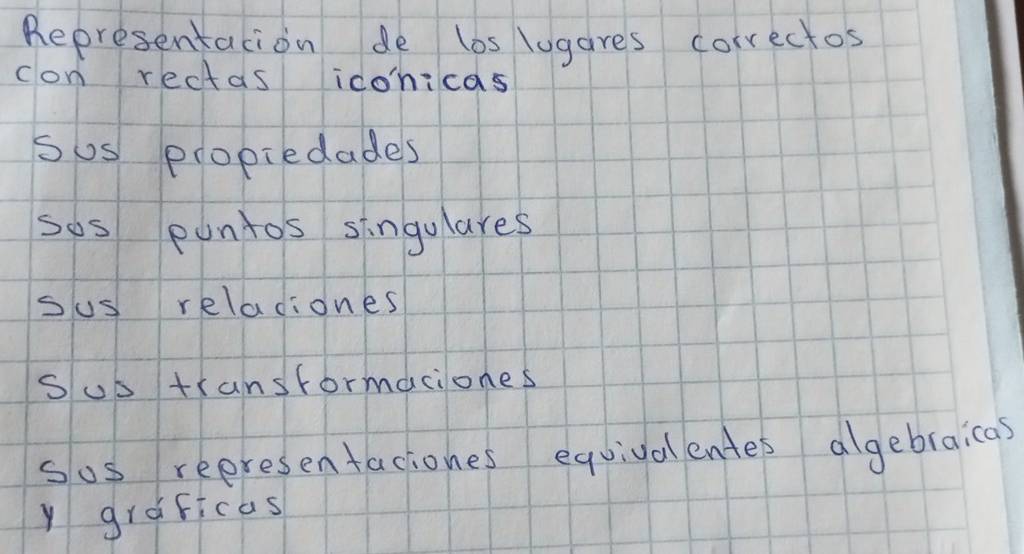 Representación de los lugares correctos
con rectas icónicas
Sus propiedades
Sus puntos singulares
Sus relaciones
Sus transformaciones
Sus representaciones equivalentes algebraicas
y gráficas